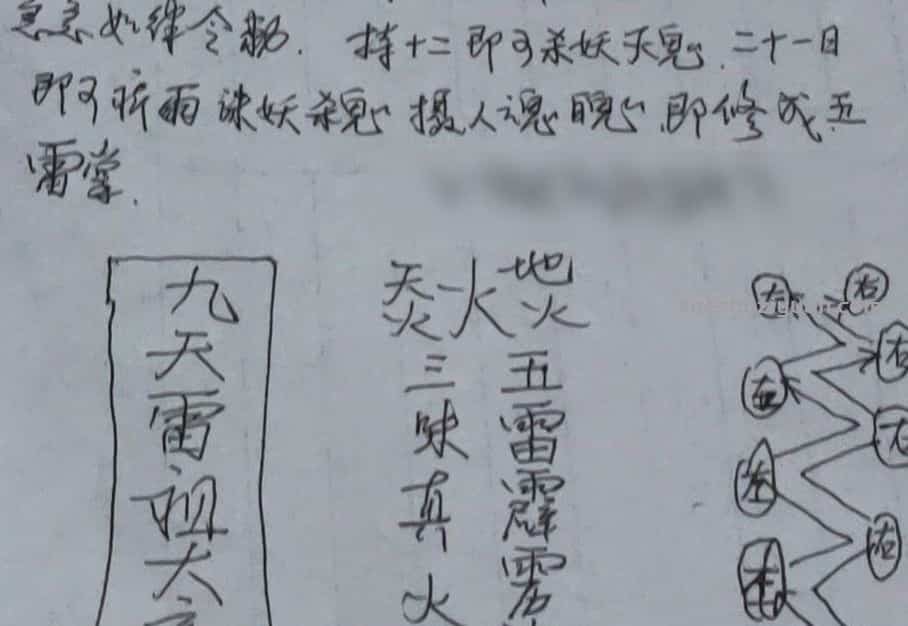 急急如律令敕. 持十二即可杀妖灭鬼.二十一日
即可祈雨诛妖杀鬼摄人魂魄.即修成五
雷掌.
九天雷祖大
天火 火 地火
三昧真火
五雷霹雳
左 右
左 右
左 右
左 右